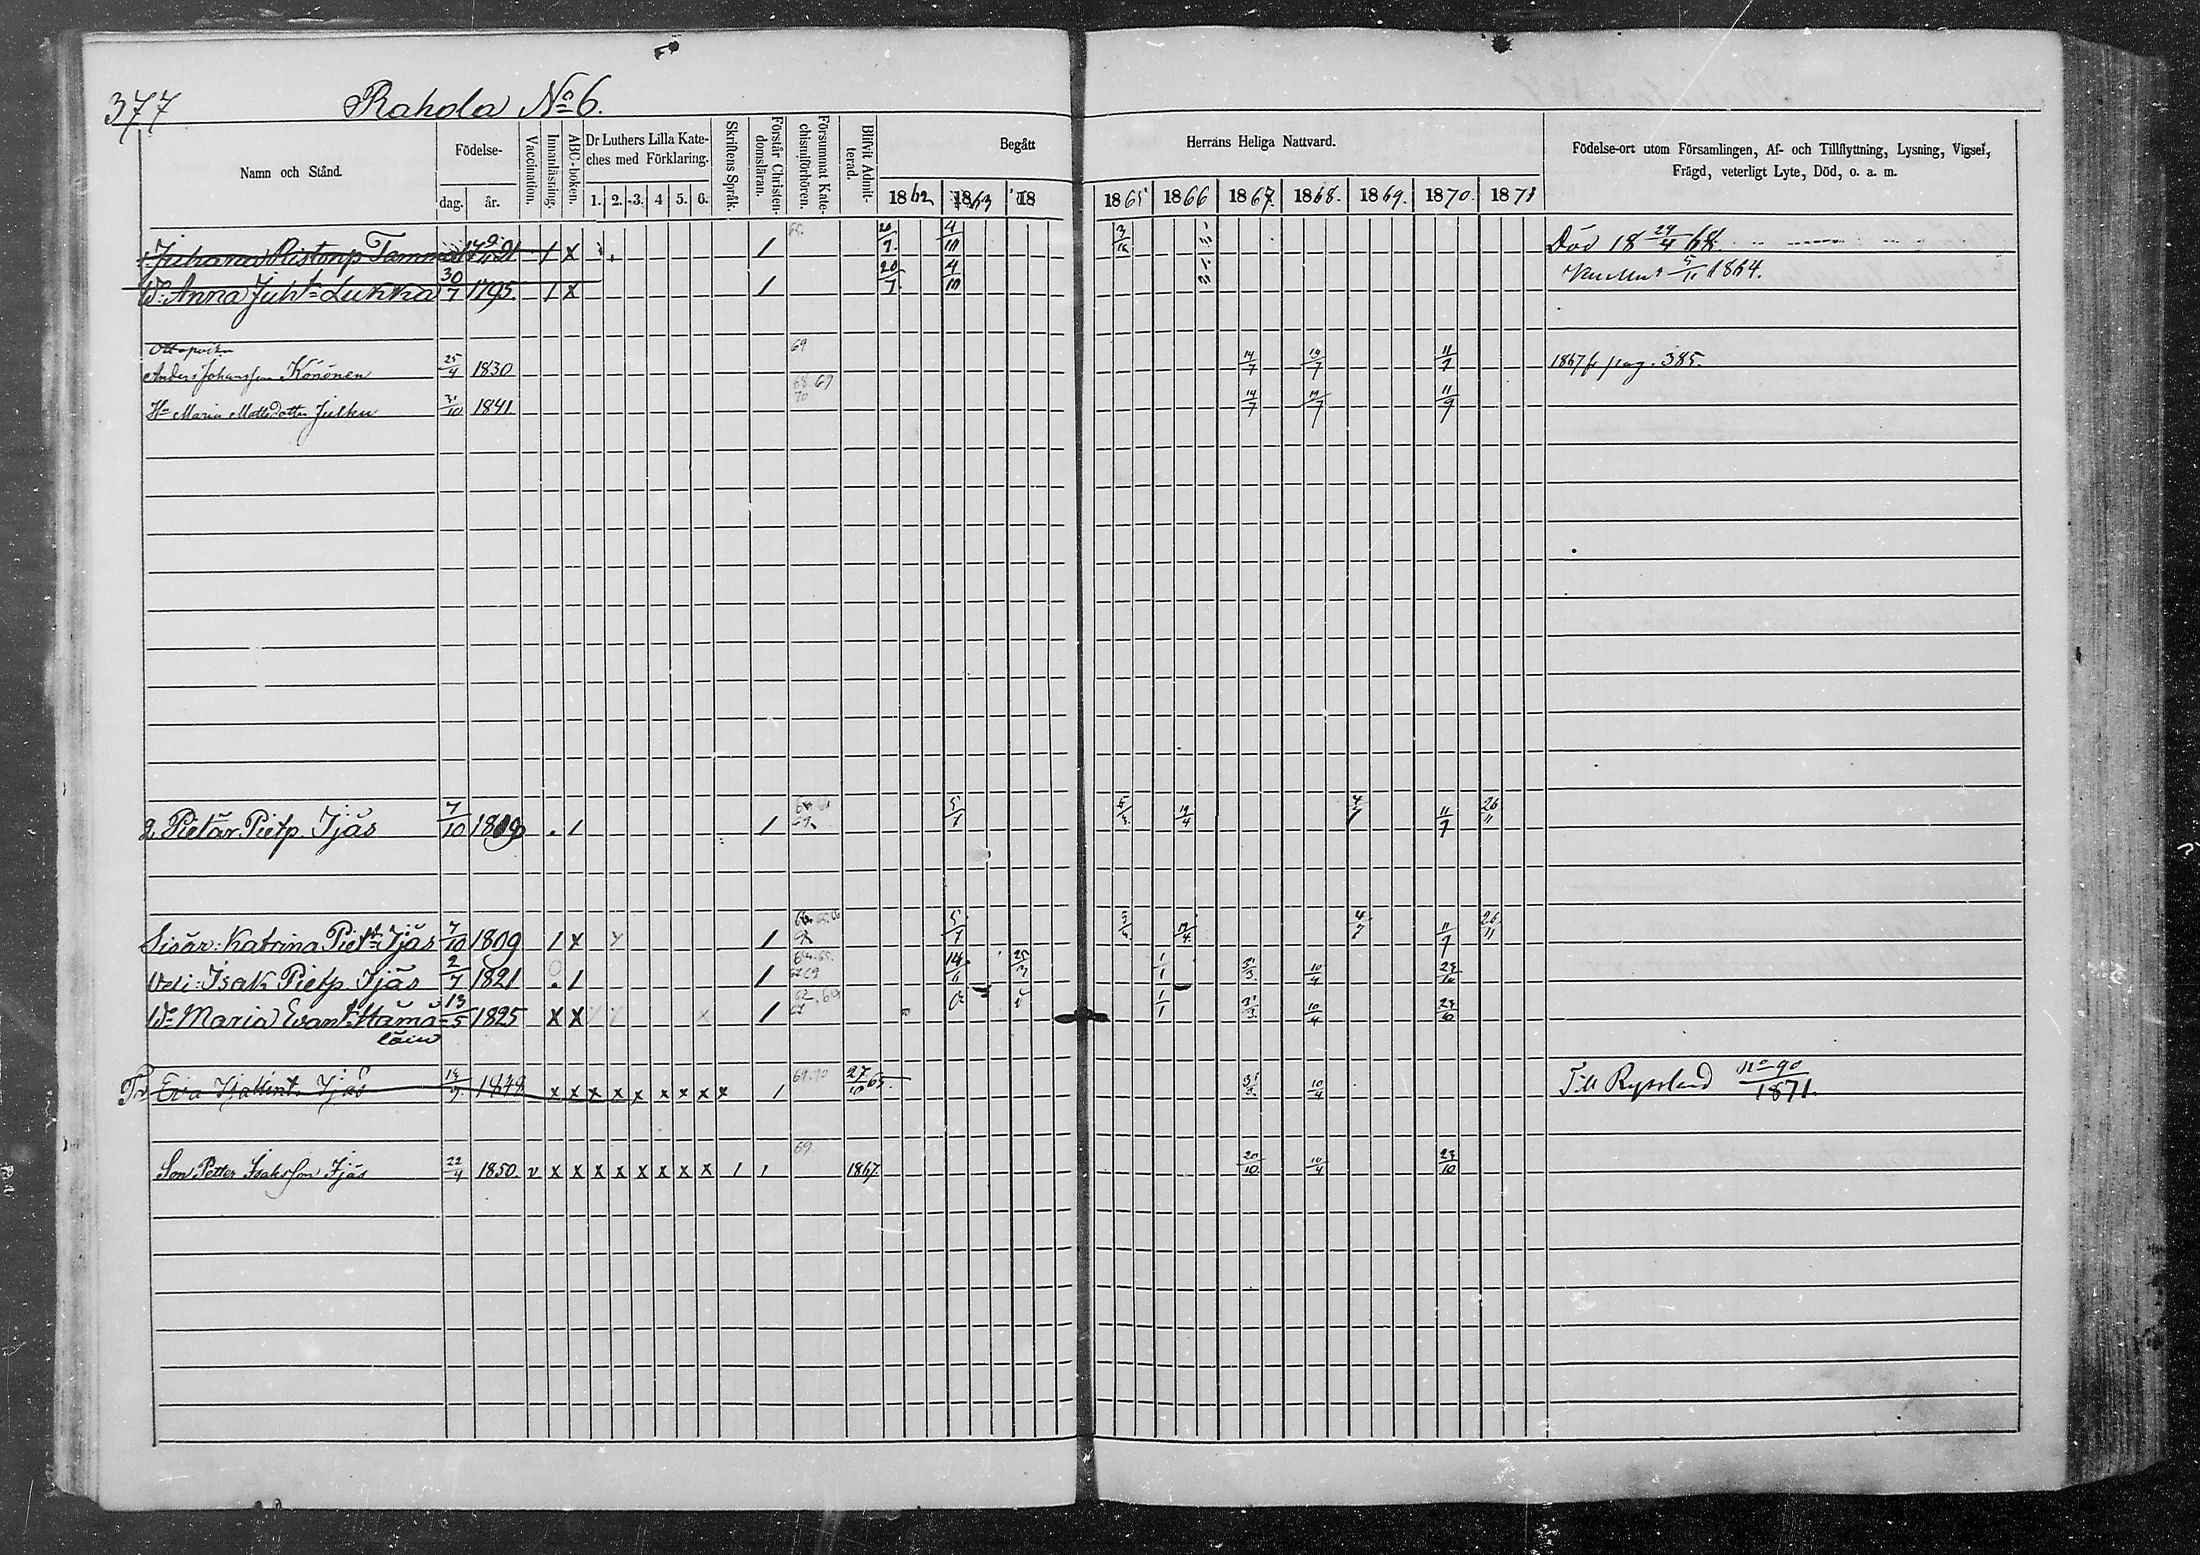 377 Rahola No 6.
Namn och Stånd.
Födelse-
dag. år.
Vaccination.
Innanläsning.
ABC-boken.
Dr Luthers Lilla Kate-
ches med Förklaring.
1. 2. 3. 4 5. 6.
Skriftens Språk.
Förstår Christen-
domsläran.
Försummat Kate-
chismiförhören.
Blifvit Admit-
terad.
Begått Herrans Heliga Nattvard.
1862 1863 18 1865 1866 1867. 1868. 1869. 1870. 1871
Födelse-ort utom Församlingen, Af- och Tillflyttning, Lysning, Vigsel,
Frägd, veterligt Lyte, Död, o. a. m.
1. Juhana Ristonp 1 x 1 20/7. 4/10 Död 18 24/4 68
W: Anna Juht: Lukka 30/7 1795. 1 x 1 20/7. 4/10 5/11 1864.
Anders Johansson Könönen 25/4 1830 69 14/7 19/7 11/7 1867 fr. pag. 385.
Hu Maria Mattsdotter Julku 31/10 1841 68 69 70 14/7 19/7 11/9
2. Pietar Pietp Ijäs 7/10 1809 . 1 1 5/7 19/4 4/7 11/7 26/11
Sisar: Katrina Piett: Ijäs 7/10 1809 1 x 1 5/7 19/4. 4/7 11/7 26/11
Veli: Isak Pietp Ijäs 2/7 1821 . 1 1 14/6 25/3 1/1 31/3. 10/4 23/10
W: Maria Evant: Hämä- 13/5 1825 x x 1 1/1 31/3. 10/4 23/10
läin
Tr Eva Isakint. Ijäs 14/9. 1848 x x x x x x x x x 1 69.70 27/10 65. 31/3. 10/4 Till Ryssland No 90/1871.
Son Petter Isaksson Ijäs 22/4 1850. v x x x x x x x x 1 1 69. 1867 20/10 10/4 23/10